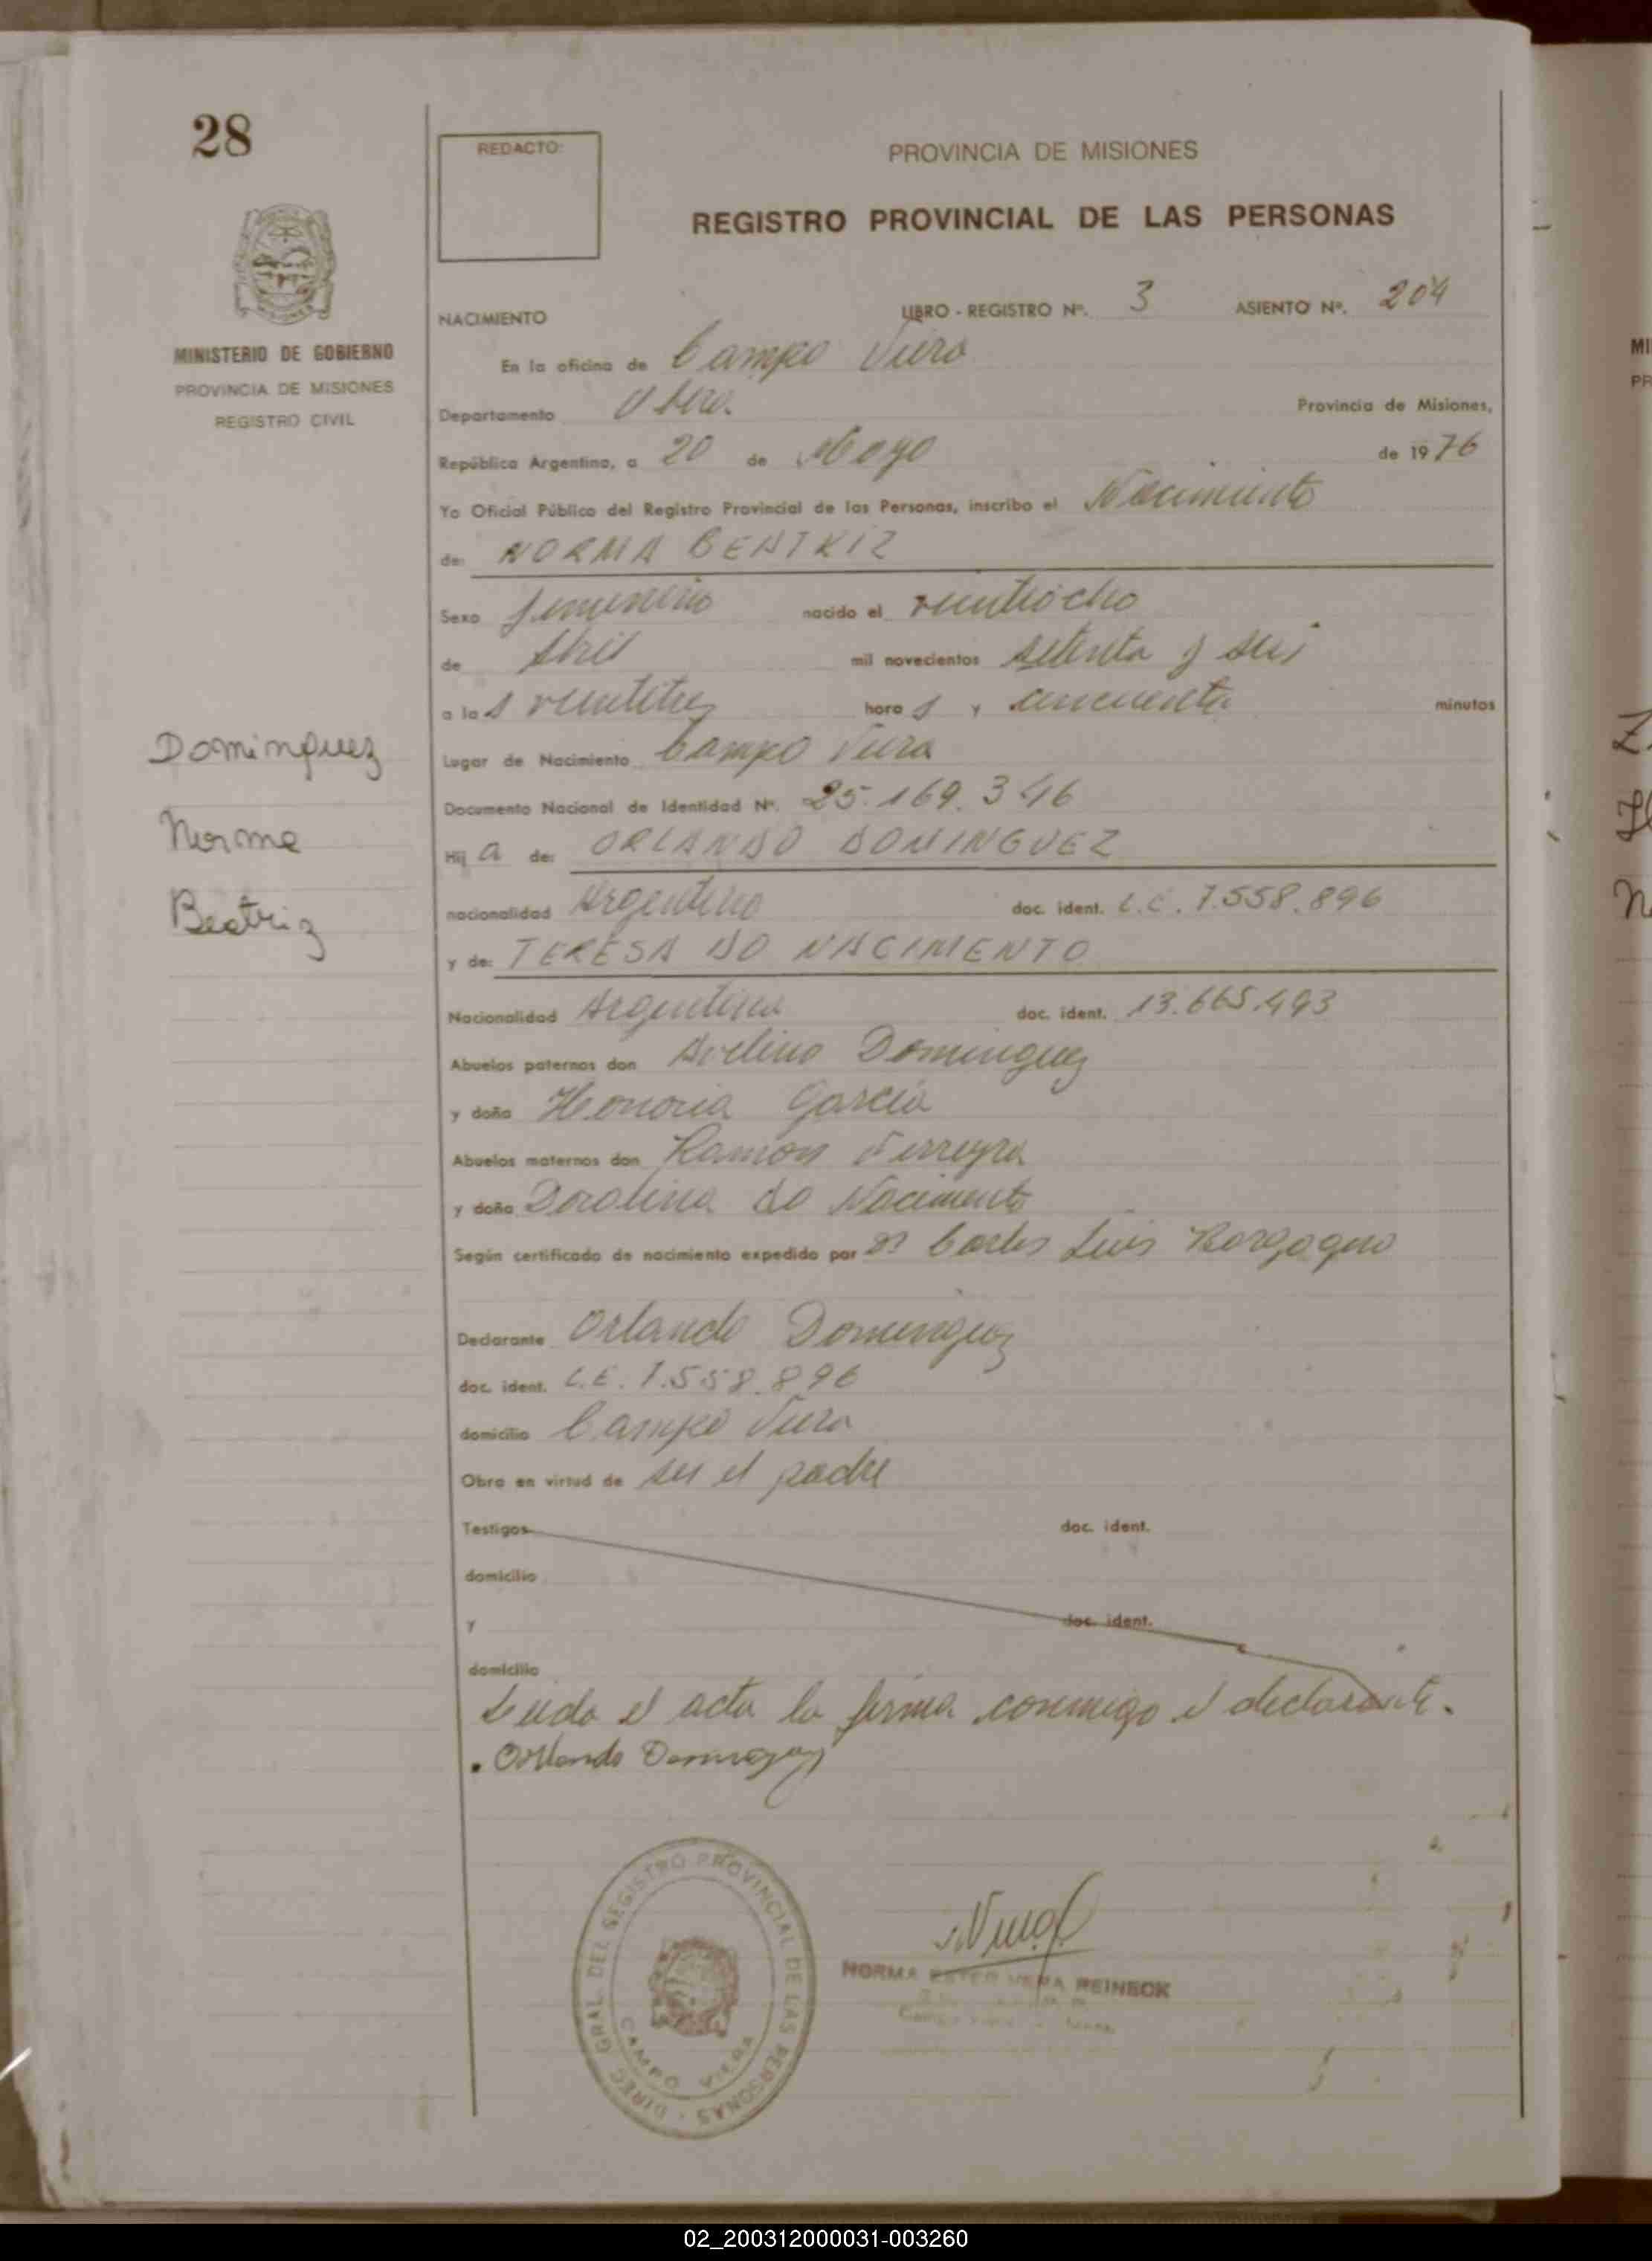 28
REDACTO:
PROVINCIA DE MISIONES
REGISTRO PROVINCIAL DE LAS PERSONAS
MINISTERIO DE GOBIERNO
PROVINCIA DE MISIONES
REGISTRO CIVIL
NACIMIENTO LIBRO - REGISTRO Nº. 3 ASIENTO Nº. 204
En la oficina de Campo Viera
Departamento Obera Provincia de Misiones,
República Argentina, a 20 de Mayo de 1976
Yo Oficial Público del Registro Provincial de las Personas, inscribo el Nacimiento
de: NORMA BEATRIZ
Sexo femenino nacido el veintiocho
de Abril mil novecientos setenta y seis
a las veintitres horas y cincuenta minutos
Dominguez
Norma
Beatriz
Lugar de Nacimiento Campo Viera
Documento Nacional de Identidad Nº. 25.169.346
Hija de: ORLANDO DOMINGUEZ
nacionalidad Argentino doc. ident. 7.558.896
y de: TERESA DO NACIMENTO
Nacionalidad Argentina doc. ident. 13.665.493
Abuelos paternos don Avelino Dominguez
y doña Honoria Garcia
Abuelos maternos don Ramon Ferreyra
y doña do Nacimento
Según certificado de nacimiento expedido por Dr Carlos Luis Borgogno
Declarante Orlando Dominguez
doc. ident. L.E. 7.558.896
domicilio Campo Viera
Obra en virtud de ser el padre
Testigos doc. ident.
domicilio
y doc. ident.
domicilio
Leida el acta la firma conmigo el declarante.
Orlando Dominguez
DIREC. GRAL. DEL REGISTRO PROVINCIAL DE LAS PERSONAS
CAMPO VIERA
NORMA ESTER VERA REINECK
02_200312000031-003260